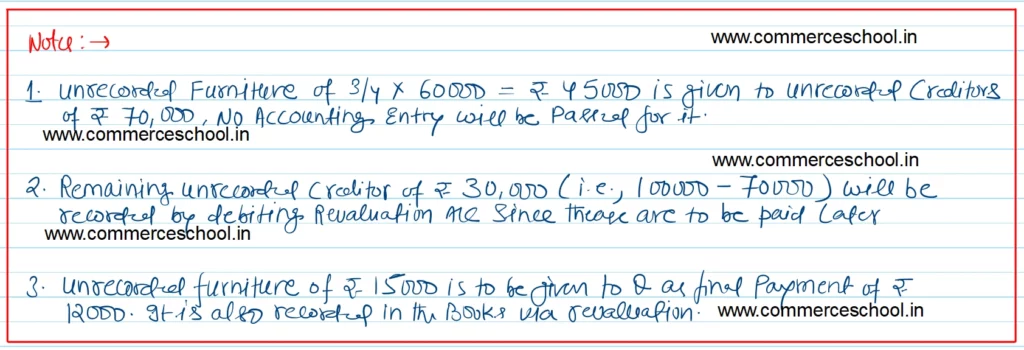 Note :→ www.commerceschool.in
1. Unrecorded Furniture of 3/4 × 60000 = ₹ 45000 is given to unrecorded Creditors
of ₹ 70,000, No Accounting Entry will be Passed for it.
www.commerceschool.in
www.commerceschool.in
2. Remaining unrecorded Creditor of ₹ 30,000 (i.e., 100000 – 70000) will be
recorded by debiting Revaluation A/c Since these are to be paid Later
www.commerceschool.in
3. Unrecorded furniture of ₹ 15000 is to be given to Q as final Payment of ₹
12000. It is also recorded in the Books via revaluation. www.commerceschool.in